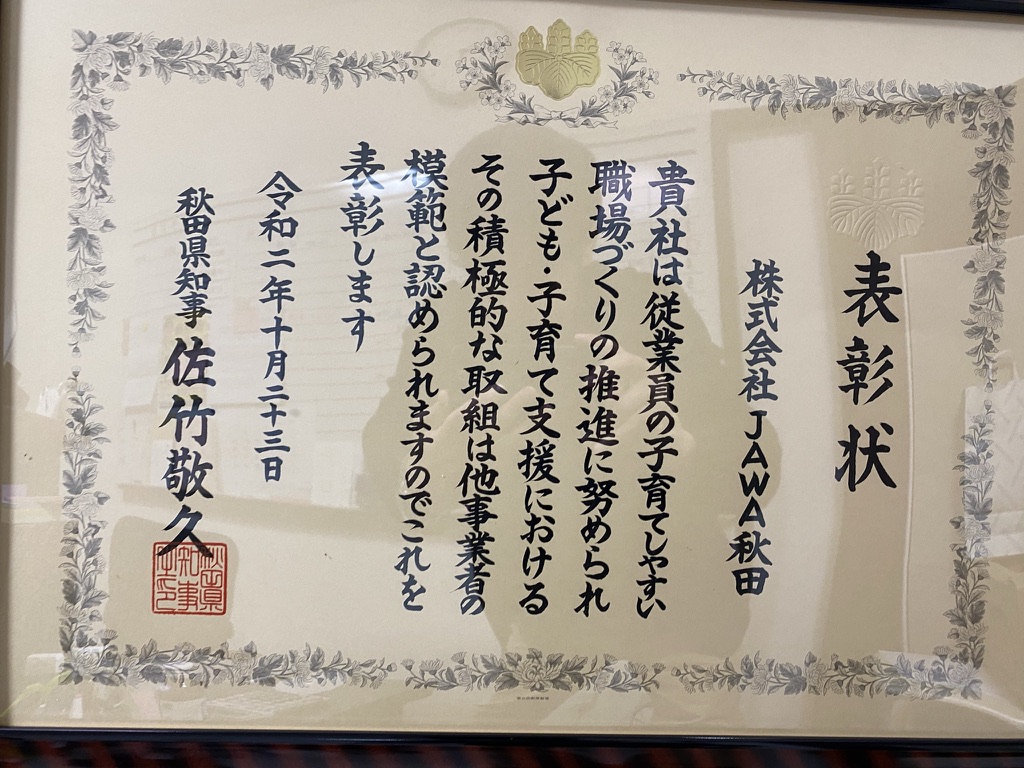 表彰状
株式会社JAWA秋田
貴社は従業員の子育てしやすい
職場づくりの推進に努められ
子ども・子育て支援における
その積極的な取組は他事業者の
模範と認められますのでこれを
表彰します
令和二年十月二十三日
秋田県知事 佐竹敬久